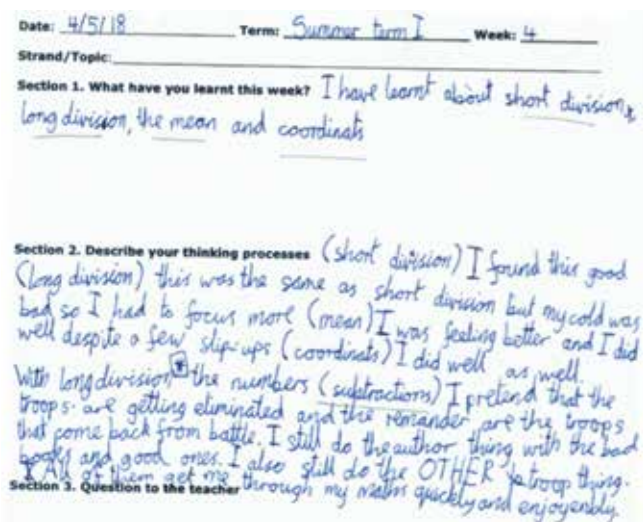 Date: 4/5/18 Term: Summer term I Week: 4
Strand/Topic:
Section 1. What have you learnt this week? I have learnt about short division,
long division, the mean and coordinats
Section 2. Describe your thinking processes (short division) I found this good
(long division) this was the same as short division but my cold was
bad so I had to focus more (mean) I was feeling better and I did
well despite a few slip-ups (coordinats) I did well as well.
With long division the numbers (subtractions) I pretend that the
troops. are getting eliminated and the remander are the troops
that come back from battle. I still do the author thing with the bad
books and good ones. I also still do the OTHER troop thing.
All of them get me through my maths quickly and enjoyenbly.
Section 3. Question to the teacher